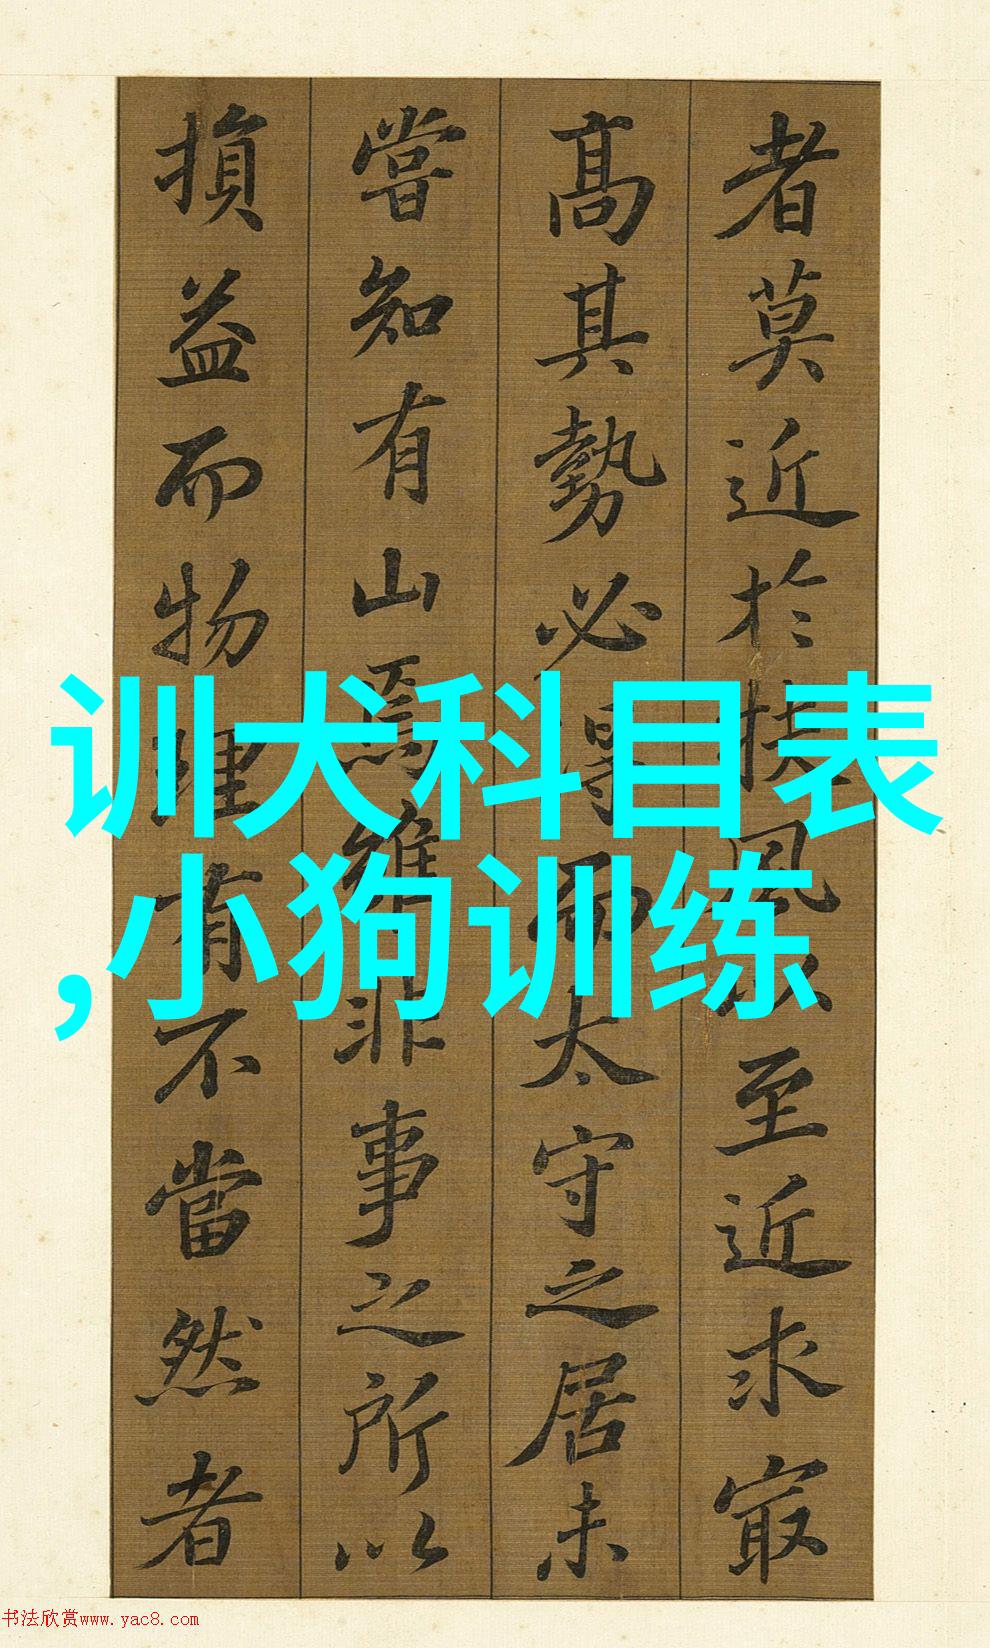 者莫近於扶風以至近求冣
高其勢必得而太守之居未
嘗知有山焉雖非事之所以
損益而物理有不當然者
训犬科目表
,小狗训练
书法欣赏www.yac8.com